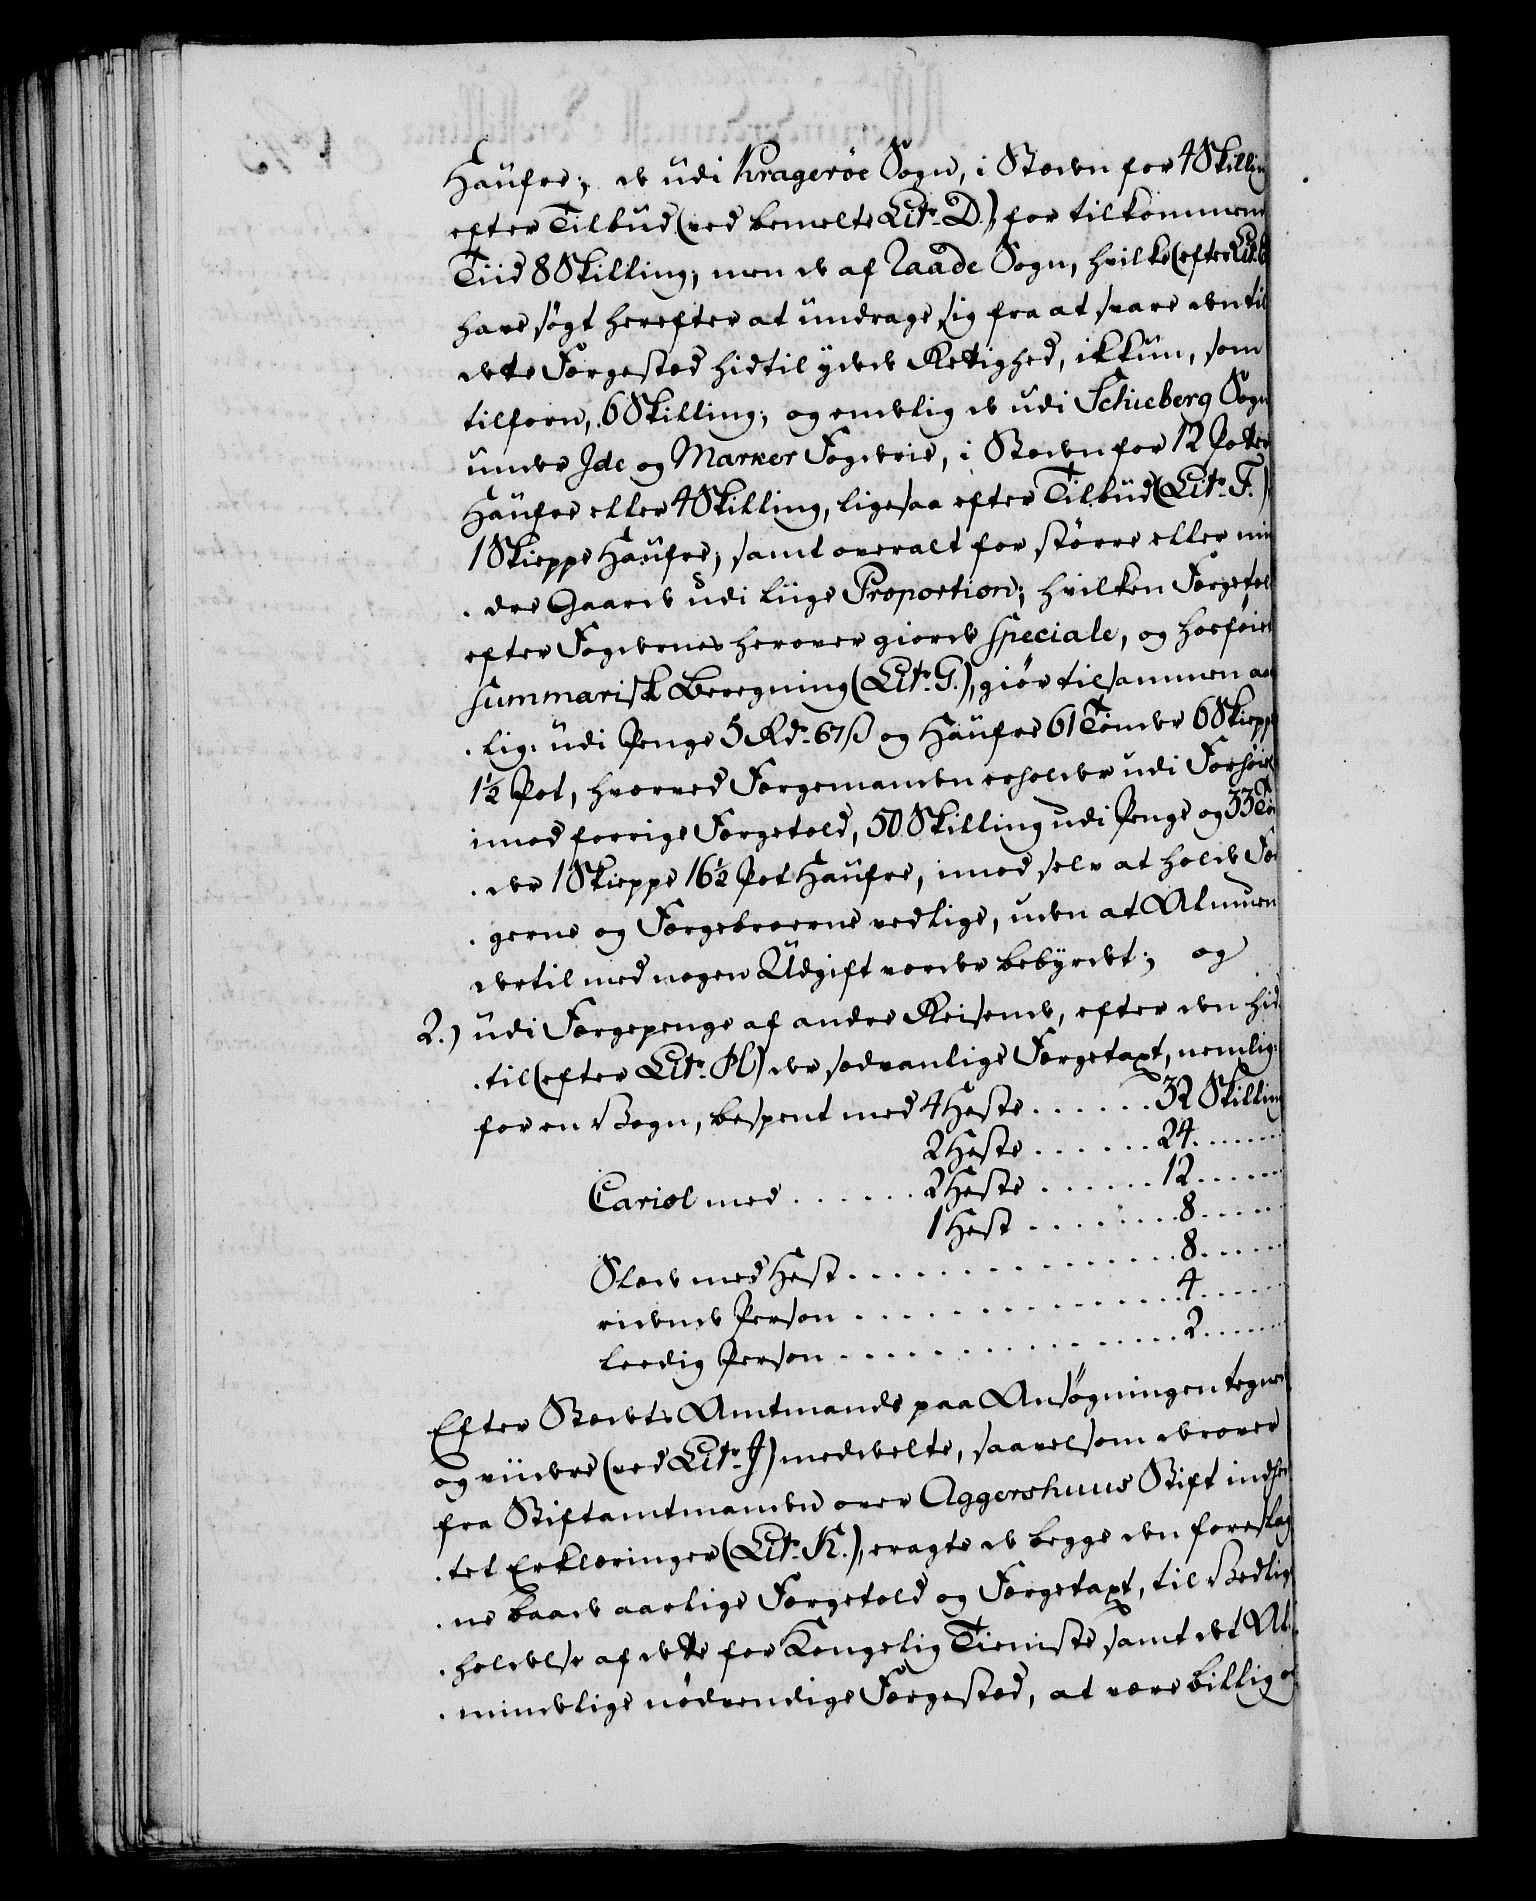 Haufre; de udi Kragerøe Sogn, i Steden for 4 Skilling
efter Tilbud (ved bemelte Litr. D.) for tilkommen
Tiid 8 Skilling; men de af Raade Sogn, hvilke (efter Litr.
have søgt herefter at undrage sig fra at svare den til
dette Færgested hidtil ydede Rettighed, ikkun, som
tilforn, 6 Skilling; og endelig de udi Schieberg Sogn
under Ide og Marker Fogderie, i Steden for 12 Potter
Haufre eller 4 Skilling, ligesaa efter Tilbud (Litr. F.)
1 Skieppe Haufre; samt overalt for større eller min
dre Gaarde udi liige Proportion; hvilken Færgetold
efter Fogdernes herover giorde Speciale, og hosføiede
Summarisk Beregning (Litr. G.), giør tilsammen aar
lig: udi Penge 5 Rdr. 67 ß og Haufre 61 Tønder 6 Skiepper
1½ Pot, hvorved Færgemanden erholder udi Forhøielse
imod forrige Færgetold, 50 Skilling udi Penge og 33 Tøn
der 1 Skieppe 16½ Pot Haufre, imod selv at holde Fær
gerne og Færgebroerne vedlige, uden at Almuen
dertil med nogen Udgift vorder bebyrdet; og
2.) udi Færgepenge af andre Reisende, efter den hid
til (efter Litr. H) der sædvanlige Færgetaxt, nemlig:
for en Vogn, bespent med 4 Heste . . . . . . 32 Skilling
2 Heste . . . . . . 24 . . . . . .
Cariol med . . . . . . 2 Heste . . . . . . 12 . . . . . .
1 Hest . . . . . . 8 . . . . . .
Slæde med Hest . . . . . . 8 . . . . . .
ridende Person . . . . . . 4 . . . . . .
leedig Person . . . . . . 2 . . . . . .
Efter Stedets Amtmands paa Ansøgningen tegnede
og viidere (ved Litr. J) meddeelte, saavelsom derover
fra Stiftamtmanden over Aggershuus Stift indhen
tet Erklæringer (Litr. K.), eragte de begge den foreslag
ne baade aarlige Færgetold og Færgetaxt, til Vedlige
holdelse af dette for Kongelig Tieniste samt det Al
mindelige nødvendige Færgested, at være billig og